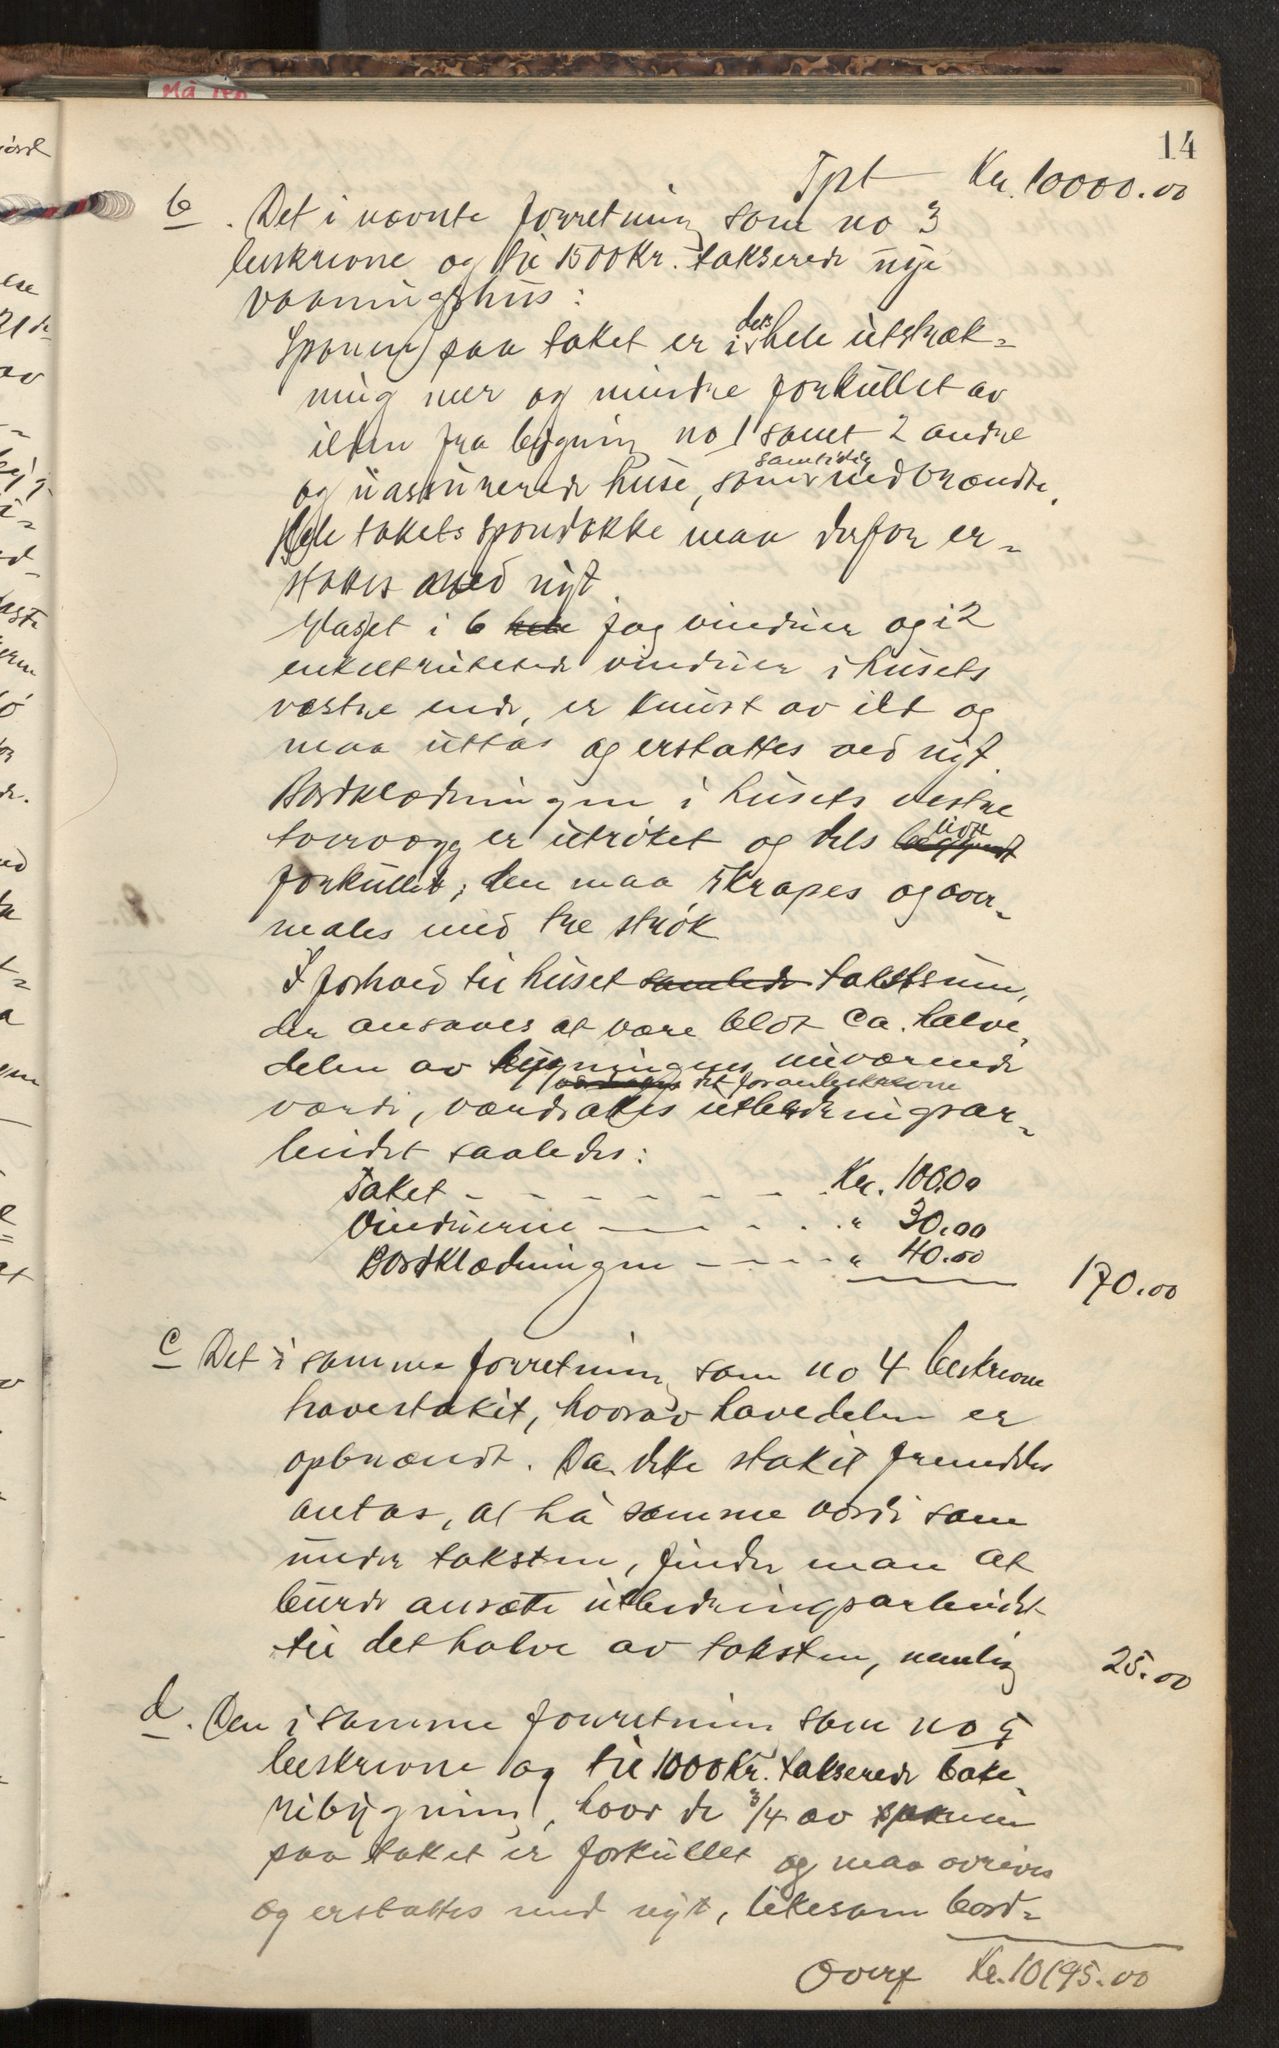 14
Tpt Kr. 10000.00
b. Det i nævnte forretning som no 3
beskrevne og til 1500 Kr. takserede nye
vaaningshus:
Sponen paa taket er i dets hele utstræk-
ning mer og mindre forkullet av
ilden fra bygning no 1 samt 2 andre
og uassurerede huse, som samtidig nedbrændte.
Hele takets spondække maa derfor er-
stattes med nyt.
Glasset i 6 hele fag vinduer og i 2
enkeltrutede vinduer i husets
vestre ende, er knust av ild og
maa uttas og erstattes ved nyt.
Bordklædningen i husets vestre
tvervæg er utrøket og dels
forkullet; den maa skrapes og over-
males med tre strøk
I forhold til huset samlede takstsum,
der ansaaes at være blot ca. halve
delen av bygningens nuværende
værdi, værdsættes det foranbeskrevne utbedringsar-
beidet saaledes:
Taket - - - - - - - Kr. 100.00
Vinduerne - - - - - " 30.00
Bordklædningen - - - - " 40.00
170.00
c Det i samme forretning som no 4 beskrevne
havestakit, hvorav havedelen er
opbrændt. Da dette stakit fremdeles
antas, at ha samme værdi som
under taksten, finder man at
burde ansætte utbedringsarbeidet
til det halve av taksten, nemlig 25.00
d. Den i samme forretning som no 5
beskrevne og til 1000 Kr. takserede bake-
ribygning, hvor de 3/4 av sponen
paa taket er forkullet og maa avrives
og erstattes med nyt, likesom bord-
Overf Kr. 10195.00